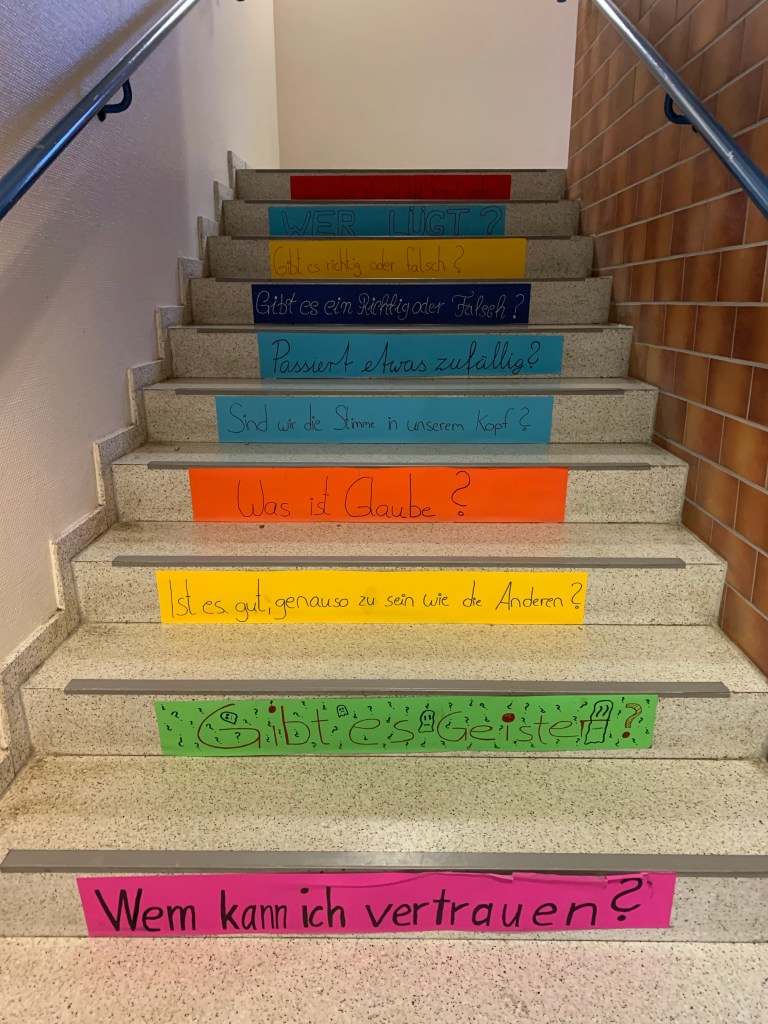 WER LÜGT?
Gibt es richtig oder falsch?
Gibt es ein Richtig oder Falsch?
Passiert etwas zufällig?
Sind wir die Stimme in unserem Kopf?
Was ist Glaube?
Ist es gut, genauso zu sein wie die Anderen?
Gibt es Geister?
Wem kann ich vertrauen?